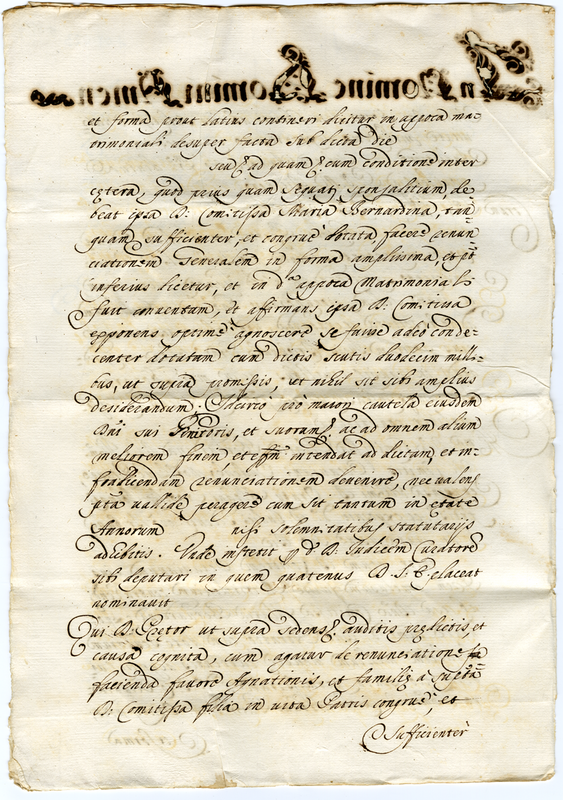 In Nomine Domini Amen
et forma prout latius contineri dicitur in appoca ma-
trimoniali desuper facta sub dicta die
seu ad quam cum conditione inter
cętera, quod prius quam sequat sponsalitium, de-
beat ipsa D. Comitissa Maria Bernardina, tan
quam sufficienter, et congruè dotata, facere renun
ciationem Generalem in forma amplissima et pt
inferius dicetur, et in da appoca Matrimoniali
fuit conventum, et affirmans ipsa D. Comitissa
exponens optimè agnoscere se fuisse adeò conde-
center dotatam cum dictis scutis duodecim milli-
bus, ut supra promissis, ut nihil sit sibi amplius
desiderandum; Idcircò prò maiori cautela eiusdem
Dñi sui Genitoris, et suorum, ac ad omnem alium
meliorem finem, et intendat ad dictam, et in-
fradicendam renunciationem devenire, nec valens
ipsa vallidè peragere cum sit tantum in ętate
Annorum nisi solemnitatibus statutarijs
adhibitis. Unde institit p d. D. Iudicem Curatorem
sibi deputari in quem quatenus D. S. E. placeat
nominavit
Qui D. Prętor ut supra sedens, auditis prędictis, et
causa cognita, cum agatur de renunciatione
facienda favore Agnationis, et familię à supta
D. Comitissa filia in vita Patris congruè, et
Sufficienter